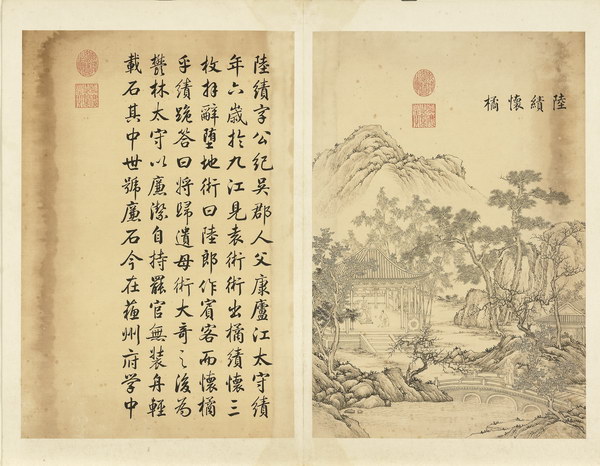 陸績懷橘
陸績字公紀吳郡人父康廬江太守績
年六歲於九江見袁術術出橘績懷三
枚拜辭墮地術曰陸郎作賓客而懷橘
乎績跪答曰將歸遺母術大奇之後為
鬱林太守以廉潔自持罷官無裝舟輕
載石其中世號廉石今在蘓州府學中